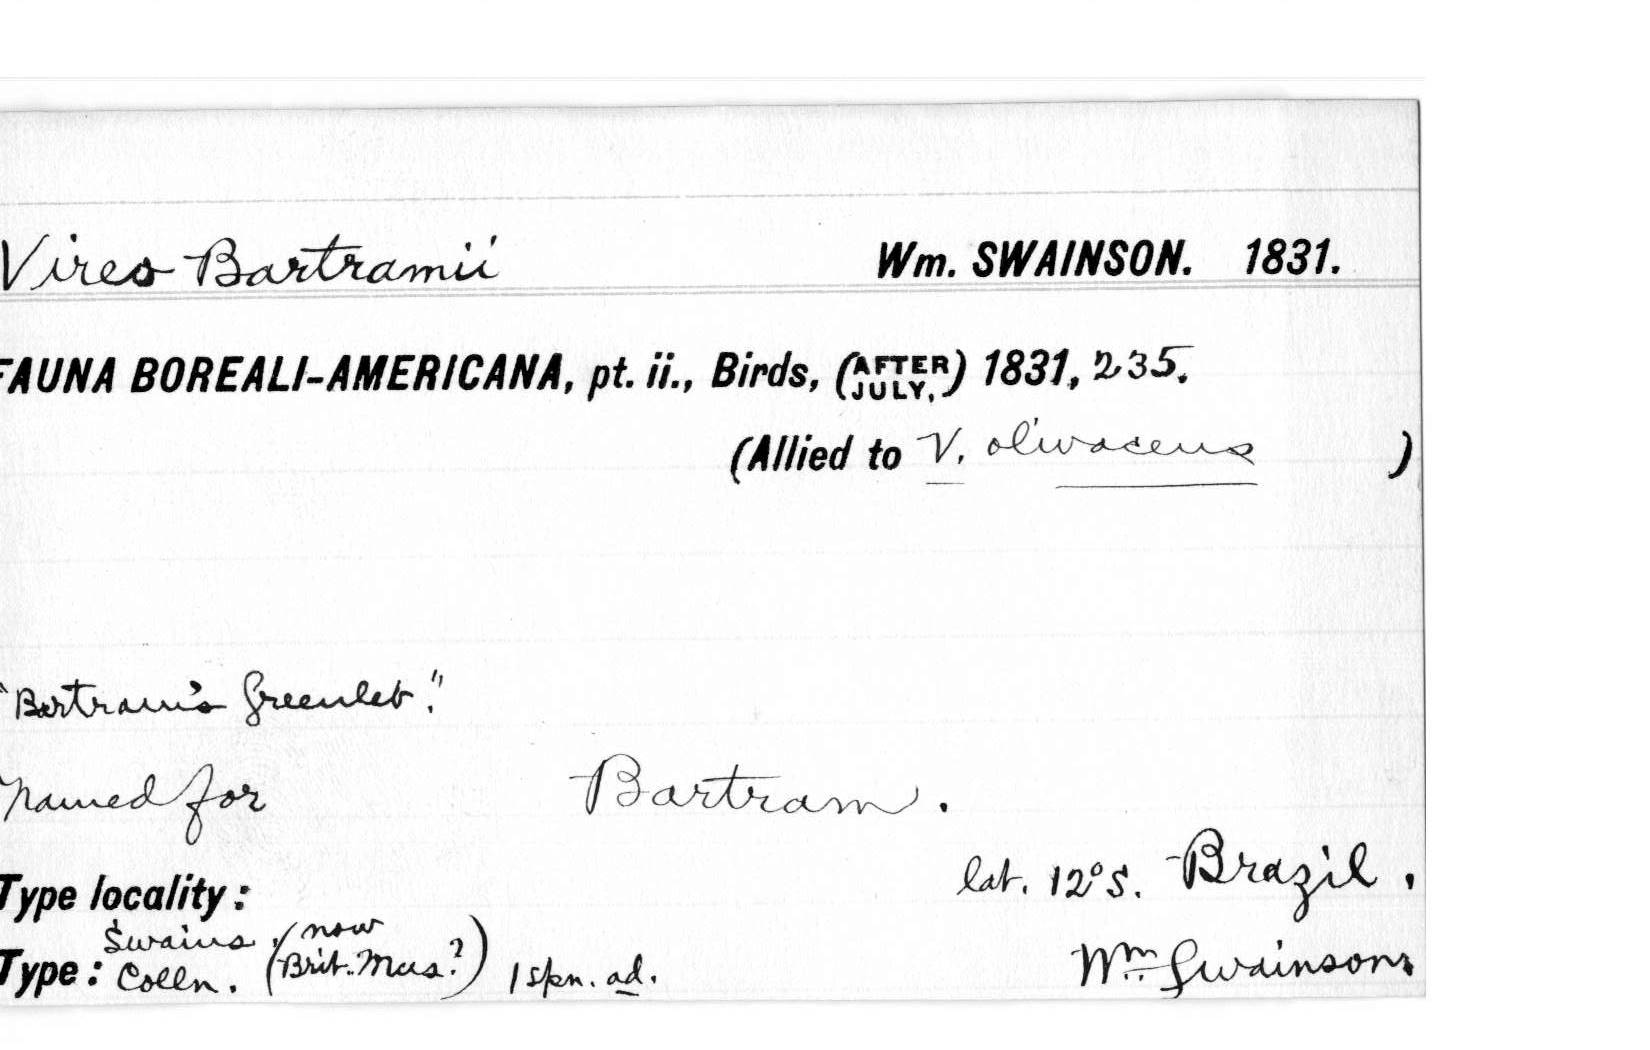 Vireo Bartramii Wm. SWAINSON. 1831.
FAUNA BOREALI-AMERICANA, pt. ii., Birds, (AFTER JULY,) 1831, 235.
(Allied to V. olivaceus )
"Bartram's Greenlet."
Named for Bartram.
lat. 12° S. Brazil.
Type locality:
Swains. (now
Type: Colln. Brit. Mus.?) 1 spn. ad. Wm. Swainson.